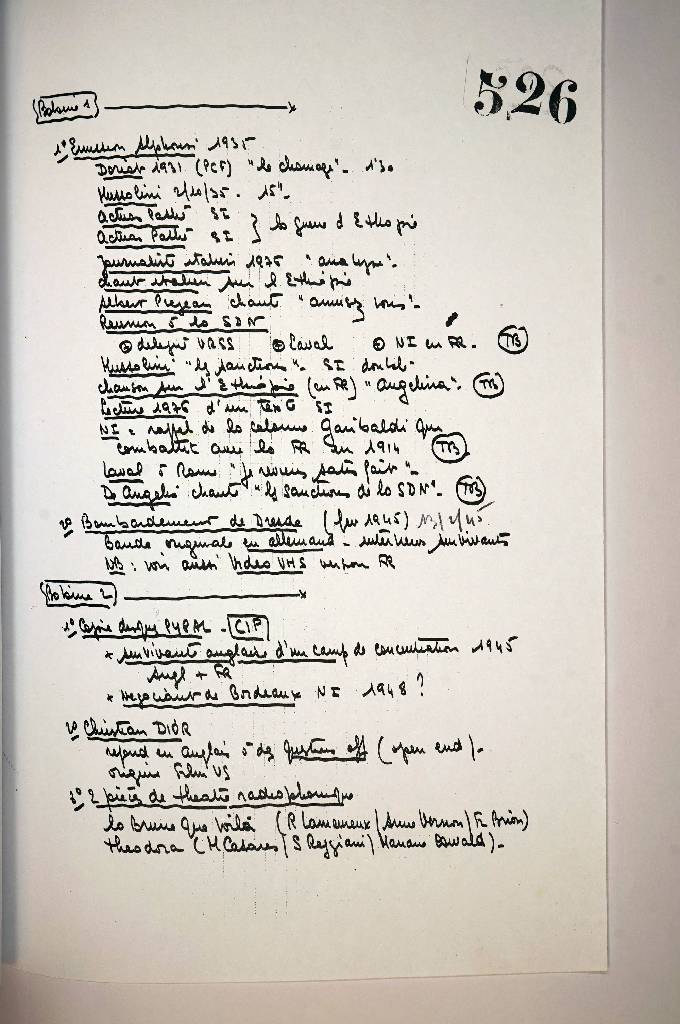 526
Bobine 1
1º Emission Alphonsi 1935
Doriot 1931 (PCF) "le chomage". 1'30
Mussolini 2/10/35. 15".
Actuas Pathé SI
Actuas Pathé SI } la guerre d Ethiopie
Journaliste italien 1976 "analyse".
chant italien sur l Ethiopie
Albert Prejean chante "amusez vous".
Reunion à la SDN
① delegué URSS ② Laval ③ NI en FR. TB
Mussolini "les sanctions". SI
chanson sur l'Ethiopie (en FR) "Angelina". TB
Lecture 1976 d'un texte SI
NI = rappel de la colonne Garibaldi qui
combattit avec la FR en 1914 TB
Laval à Rome "je reviens satisfait".
De Angelis chante "les sanctions de la SDN". TB
2º Bombardement de Dresde (fev 1945) 13/2/45
Bande originale en allemand - interviews survivants
NB : voir aussi Video VHS version FR
Bobine 2
1º Copie disque PYRAL - CIP
+ survivante anglaise d'un camp de concentration 1945
Angl + FR
+ Negociant de Bordeaux NI 1948 ?
2º Christian DIOR
repond en anglais à des questions off (open end).
origine Film US
3º 2 pièces de theatre radiophonique
la Brune que voilà (R Lamoureux / Anne Vernon / Fr Brion)
Theodora (M Casares / S Reggiani / Marianne Oswald).